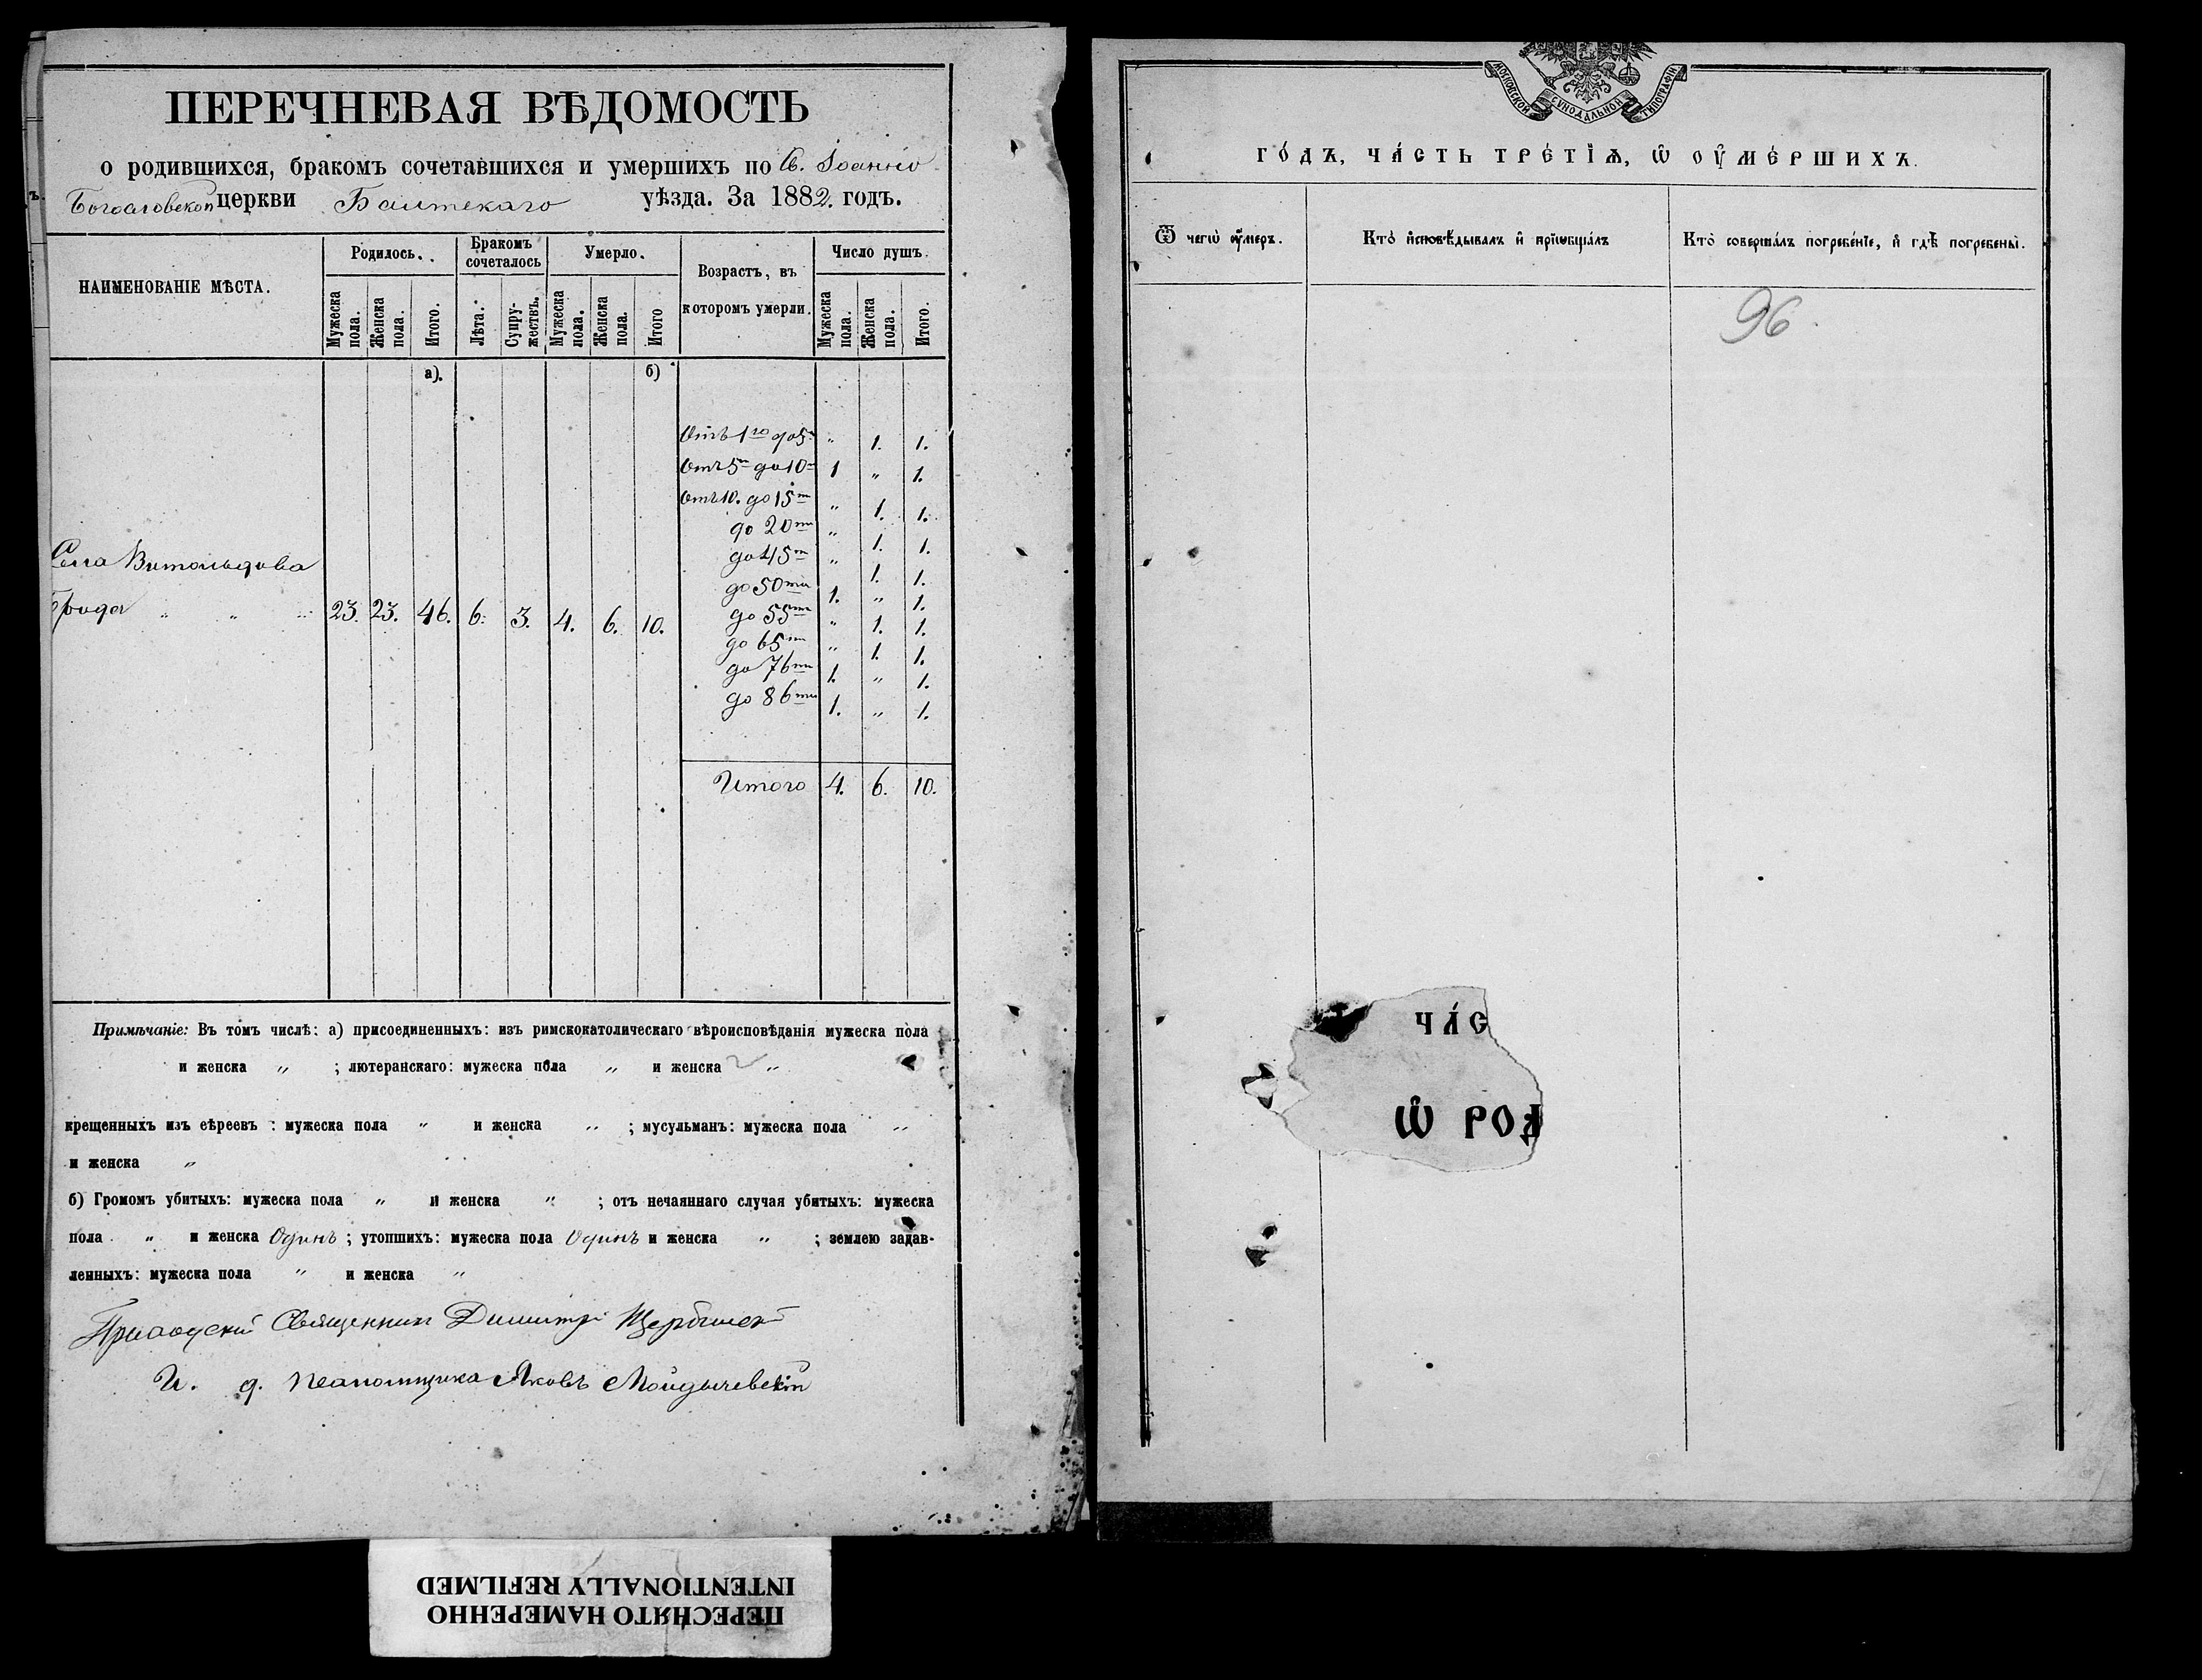 ПЕРЕЧНЕВАЯ ВѢДОМОСТЬ
о родившихся, бракомъ сочетавшихся и умершихъ по Св. Іоанно
Богословской церкви Балтскаго уѣзда. За 1882. годъ.
НАИМЕНОВАНІЕ МѢСТА.
Родилось.
Бракомъ сочеталось
Умерло.
Возрастъ, въ которомъ умерли.
Число душъ.
Мужеска пола. Женска пола. Итого. Лѣта. Супружествъ. Мужеска пола. Женска пола. Итого Мужеска пола. Женска пола. Итого.
а). б)
Отъ 1го до 5 " 1. 1.
Отъ 5 до 10 1 " 1.
Отъ 10. до 15ти " 1. 1.
до 20ти " 1. 1.
до 45ти " 1. 1.
до 50ти 1. " 1.
до 55ти " 1. 1.
до 65ти " 1. 1.
до 76ти 1. " 1.
до 86ти 1. " 1.
Села Витольдова
Брода " " " 23. 23. 46. 6. 3. 4. 6. 10.
Итого 4. 6. 10.
Примѣчаніе: Въ томъ числѣ: а) присоединенныхъ: изъ римскокатолическаго вѣроисповѣданія мужеска пола
и женска " ; лютеранскаго: мужеска пола " и женска "
крещенныхъ изъ еѣреевъ : мужеска пола " и женска " ; мусульманъ: мужеска пола "
и женска "
б) Громомъ убитыхъ: мужеска пола " и женска " ; отъ нечаяннаго случая убитыхъ: мужеска
пола " и женска Одинъ ; утопшихъ: мужеска пола Одинъ и женска " ; землею задав-
ленныхъ: мужеска пола " и женска "
Приходскій Священникъ Димитрій
И. д. псаломщика Яковъ
ПЕРЕСНЯТО НАМЕРЕННО
INTENTIONALLY REFILMED
МОСКОВСКОЙ СѴНОДАЛЬНОЙ ТИПОГРАФІИ
го́дъ, ча́сть тре́тїѧ, ѡ҆ оу҆ме́ршихъ.
Ѿ чегѡ̀ оу҆́меръ.
Кто̀ и҆сповѣ́дывалъ и҆ прїѡбща́лъ
Кто̀ соверша́лъ погребе́нїе, и҆ гдѣ̀ погребены̀.
96
ЧА́С
Ѡ҆ РОД